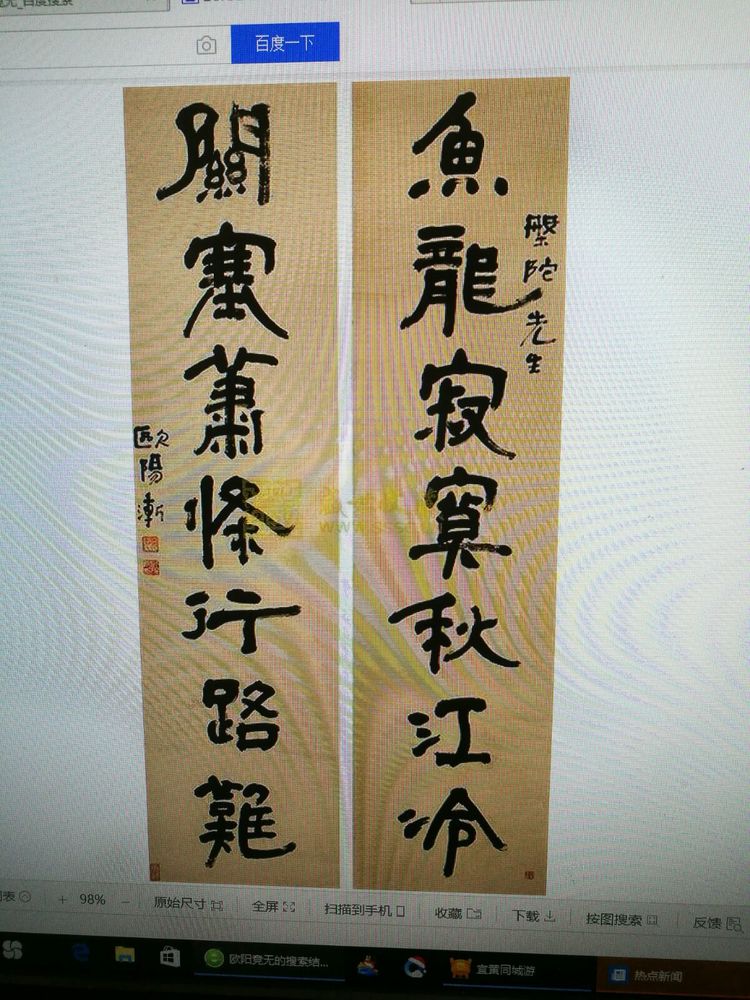 百度一下
魚龍寂寞秋江冷
槃陀先生
關塞蕭條行路難
歐陽漸
98%
原始尺寸
全屏
扫描到手机
收藏
下载
按图搜索
反馈
欧阳竟无的搜索结...
宜黄同城游
热点新闻